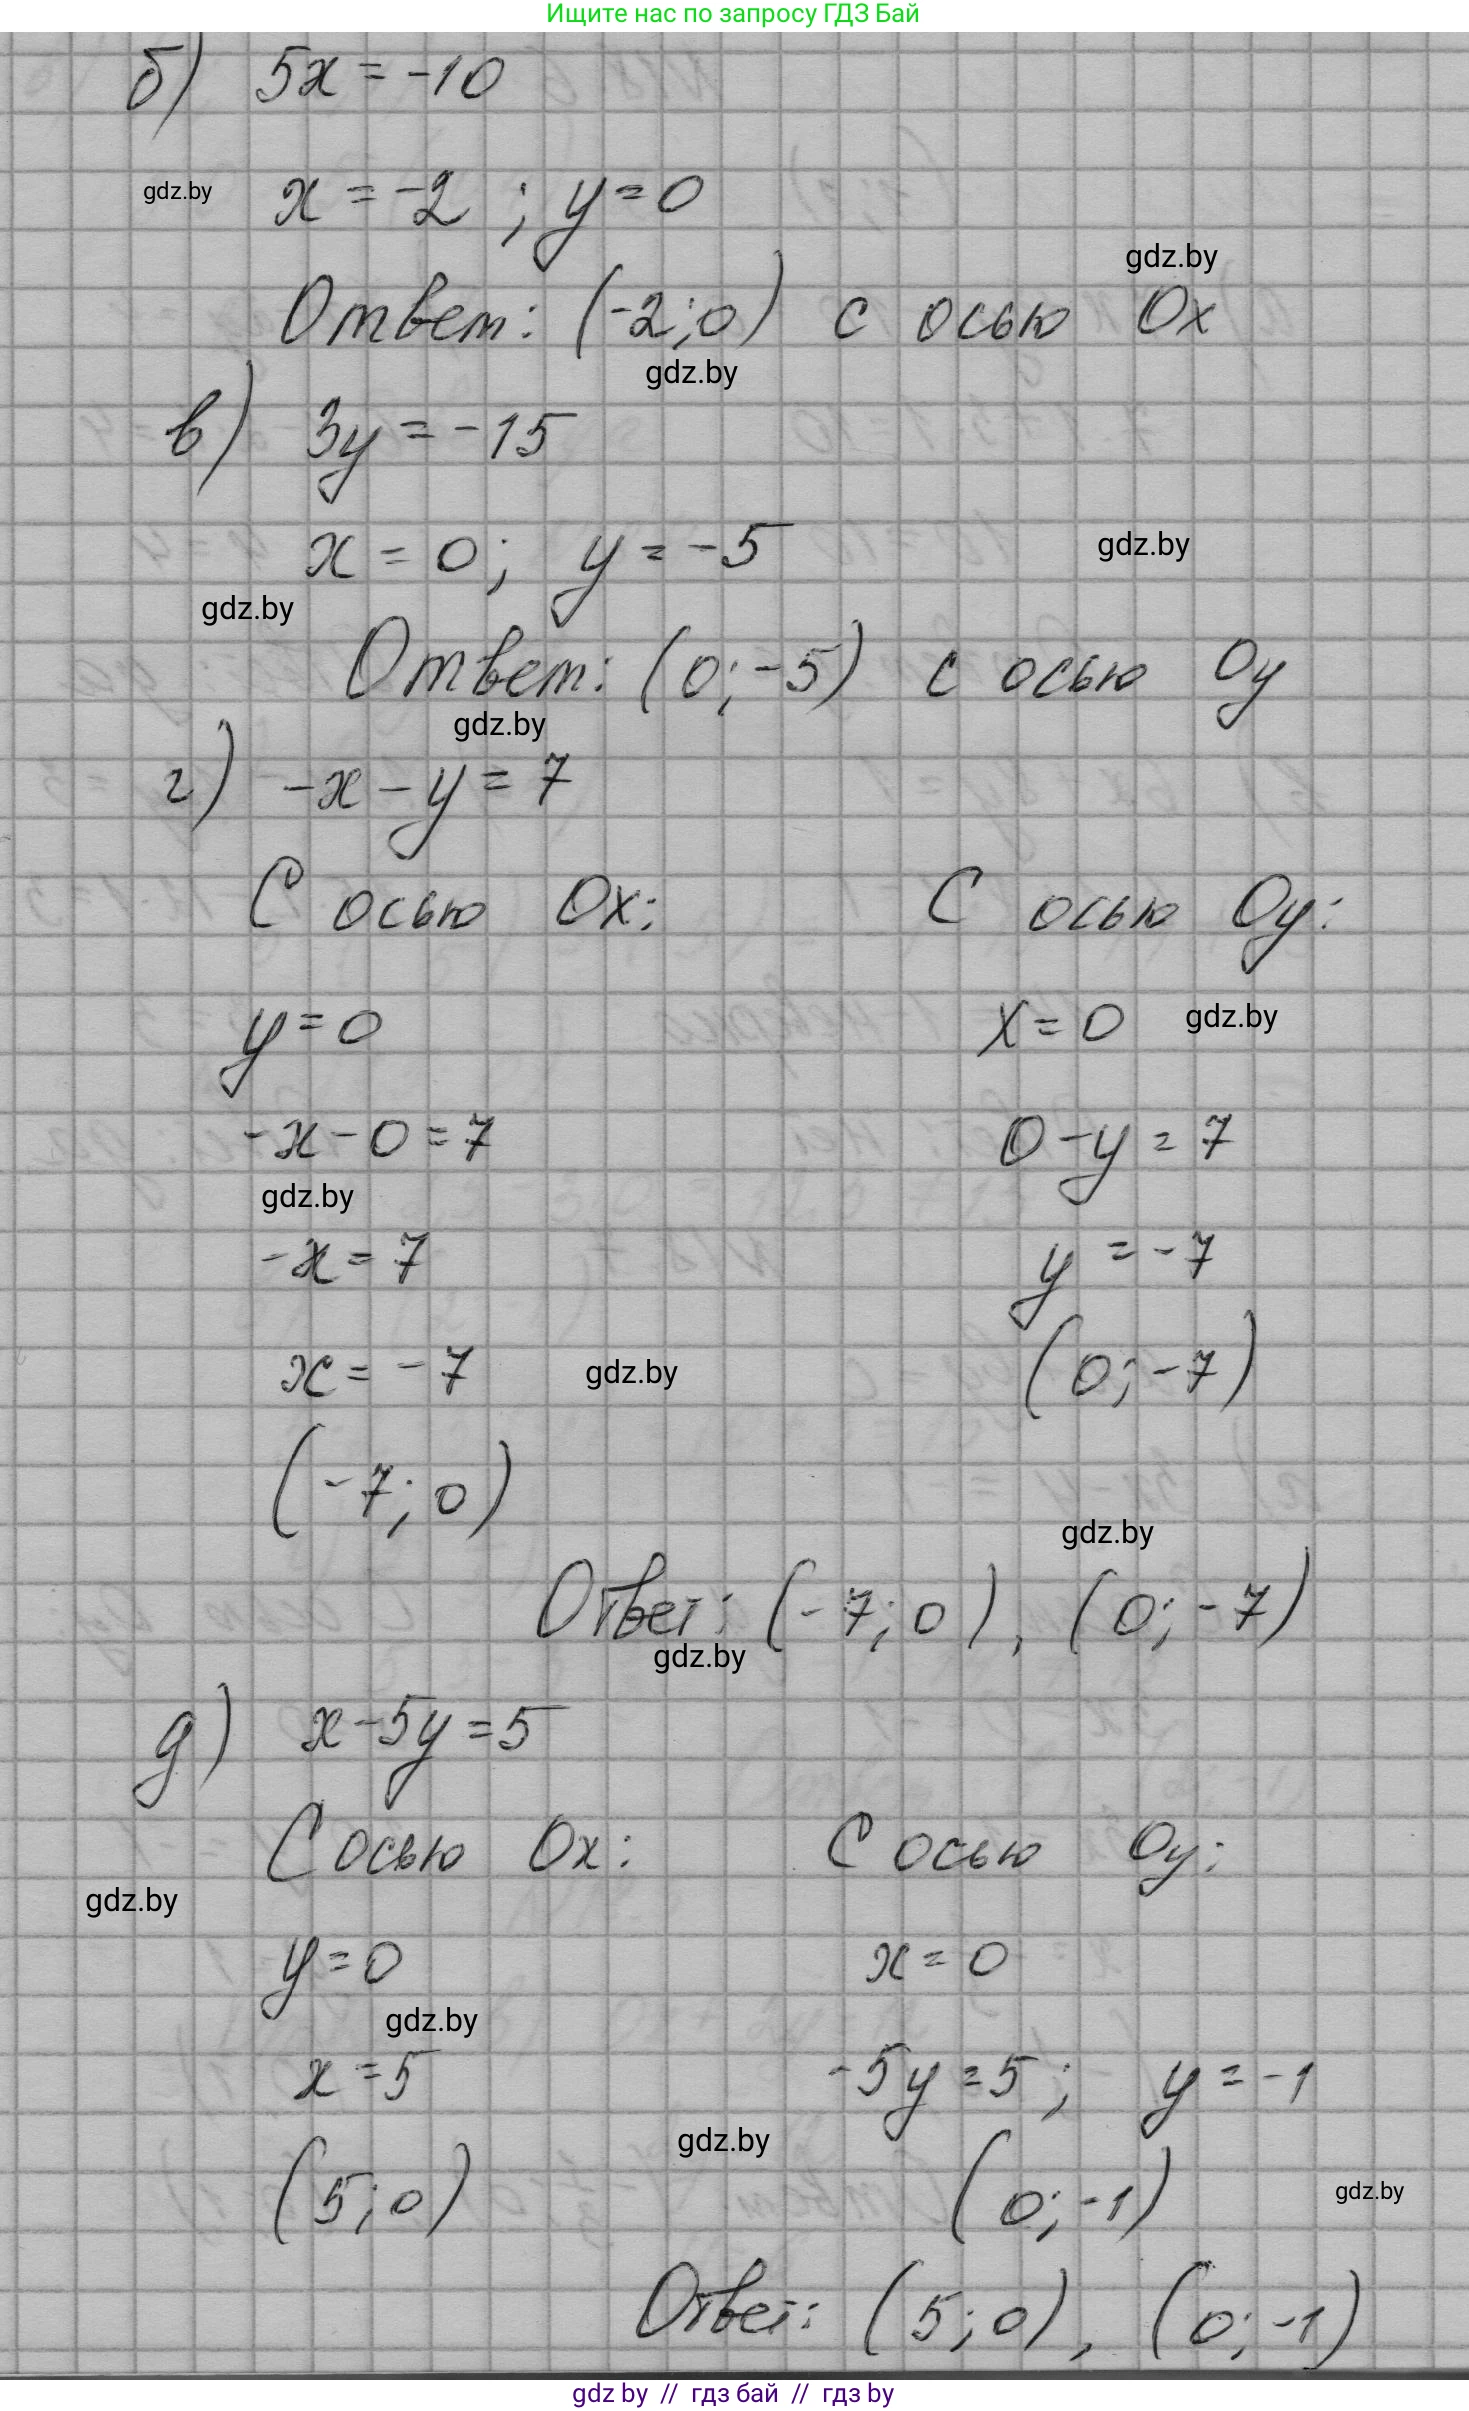 Ищите нас по запросу ГДЗ Бай
б) 5x = -10
gdz.by
x = -2 ; y = 0
gdz.by
Ответ: (-2;0) с осью Ox
gdz.by
в) 3y = -15
x = 0; y = -5
gdz.by
gdz.by
Ответ: (0; -5) с осью Oy
gdz.by
г) -x - y = 7
С осью Ox: С осью Oy:
y = 0 x = 0
gdz.by
-x - 0 = 7 0 - y = 7
gdz.by
-x = 7 y = -7
x = -7 (0; -7)
gdz.by
(-7; 0)
gdz.by
Ответ: (-7; 0), (0; -7)
gdz.by
д) x - 5y = 5
С осью Ox: С осью Oy:
gdz.by
y = 0 x = 0
gdz.by
x = 5 -5y = 5; y = -1
gdz.by
(5; 0) (0; -1)
gdz.by
Ответ: (5; 0), (0; -1)
gdz by // гдз бай // гдз by